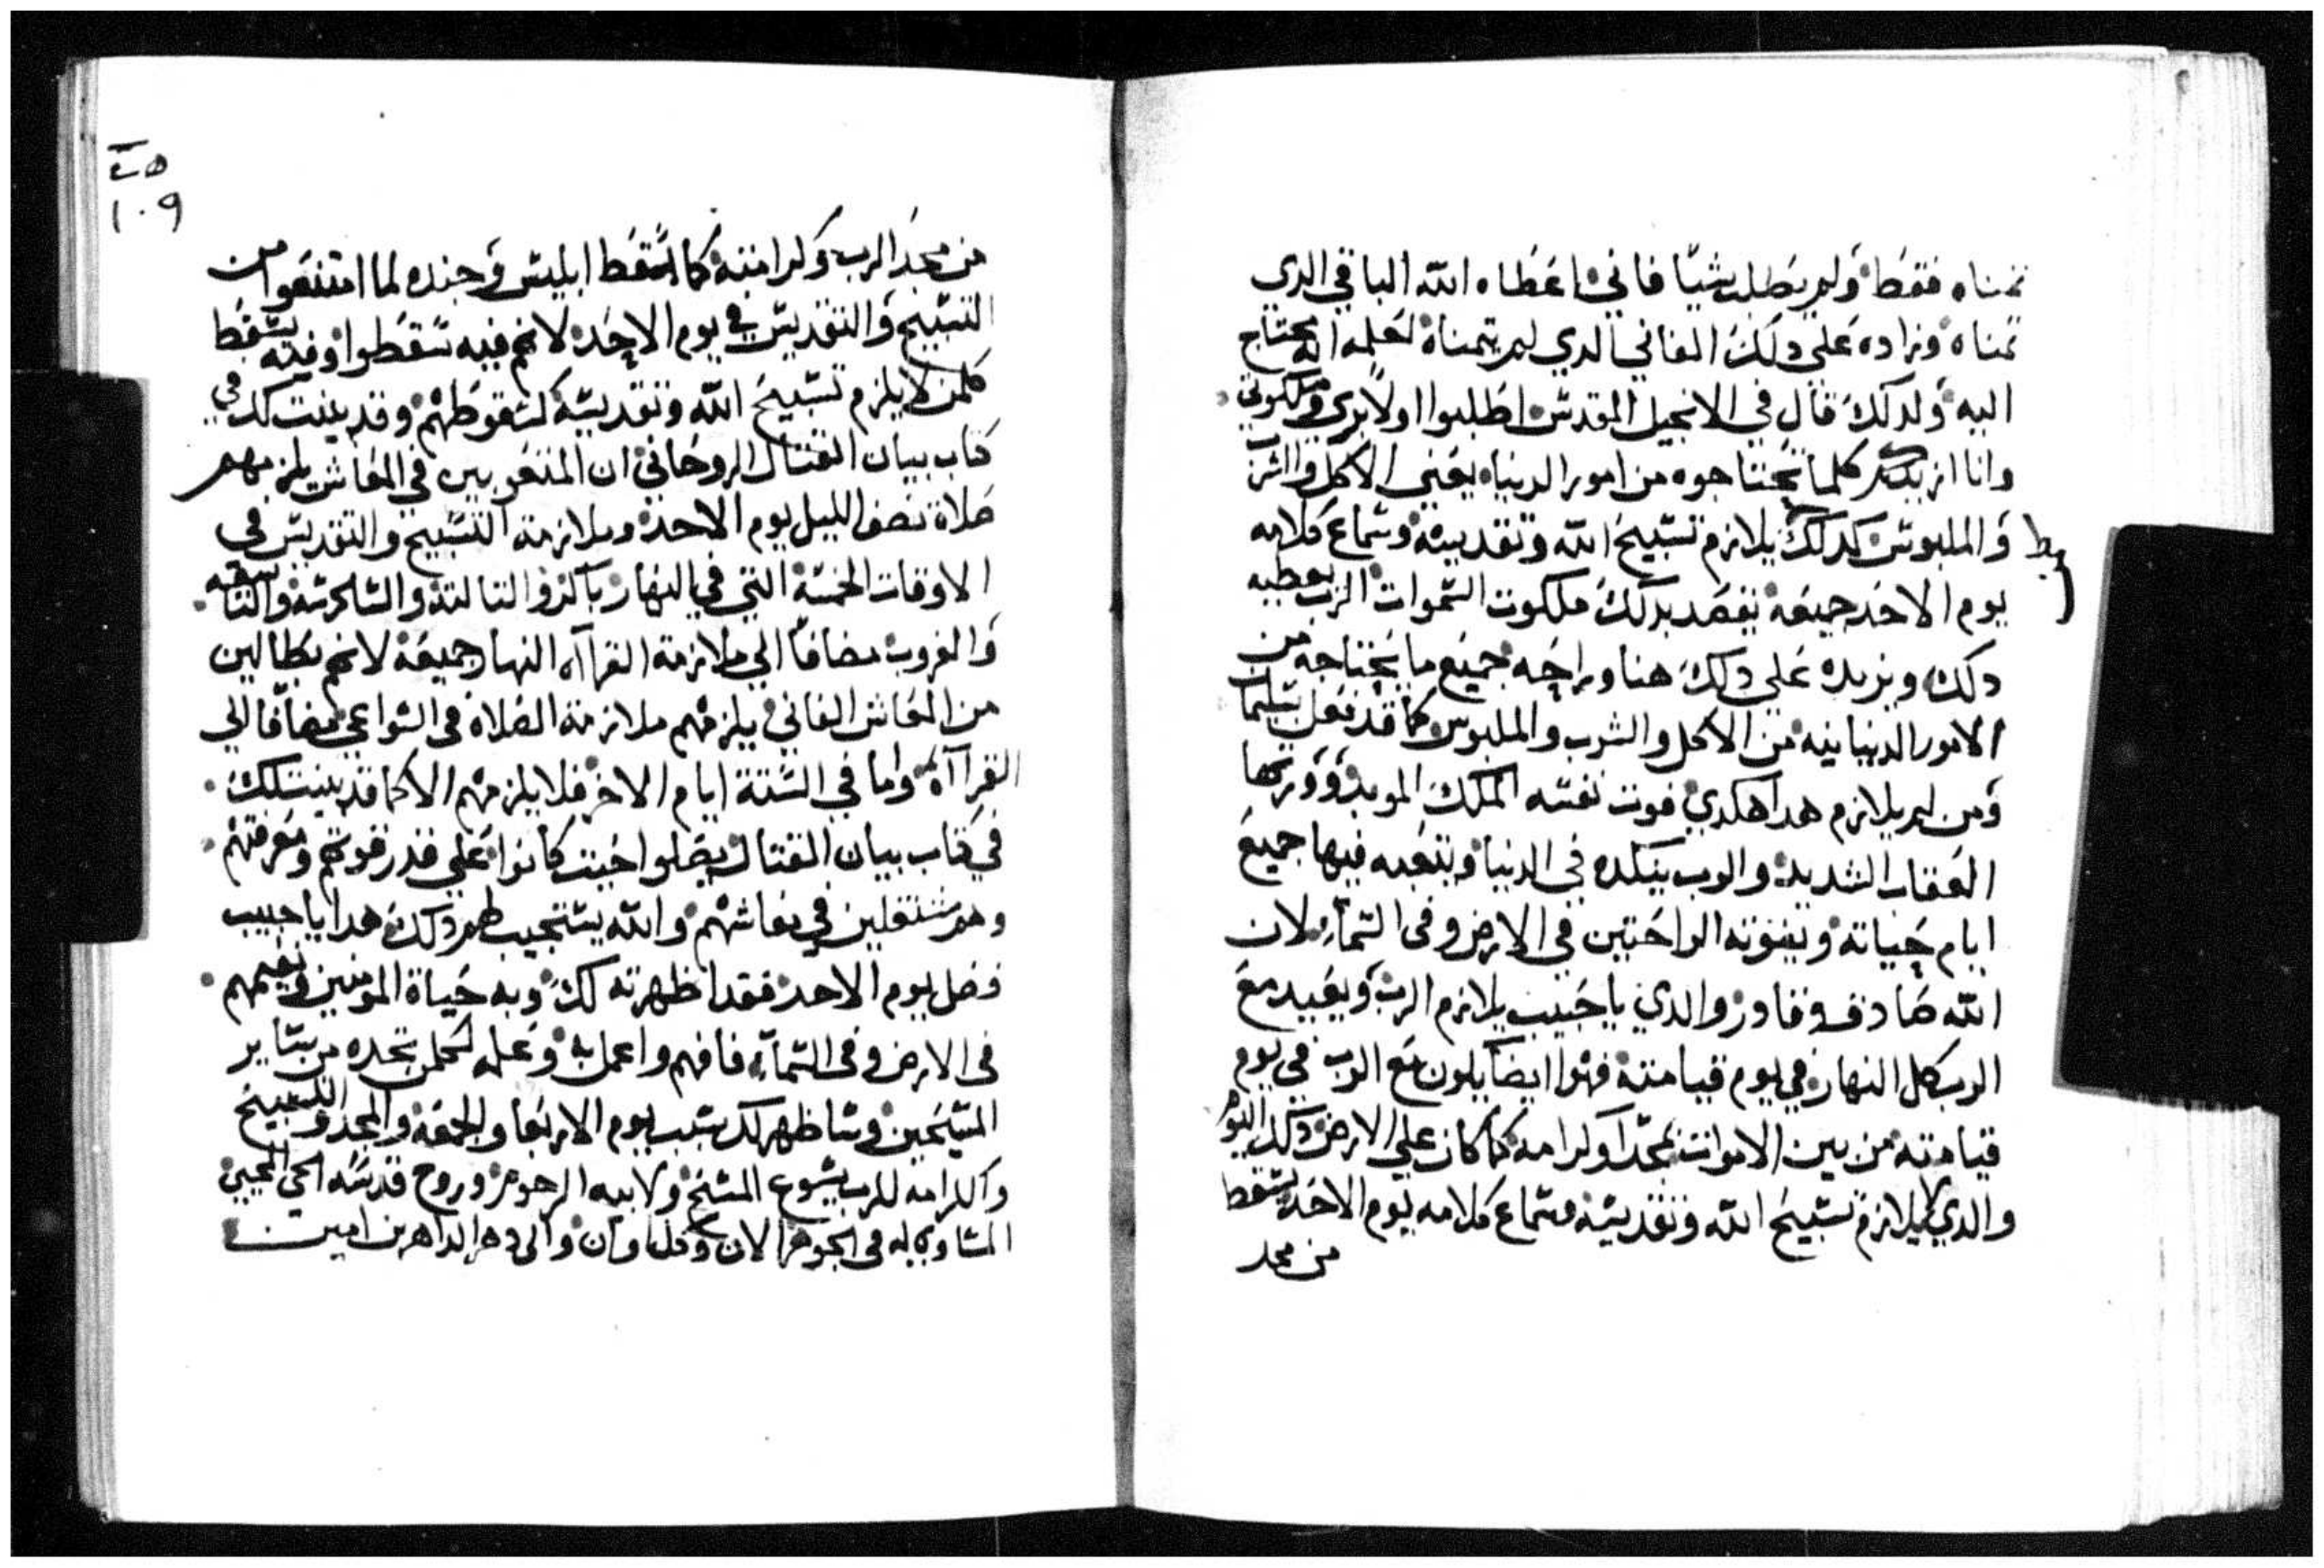 تمناه فقط ولم يطلب شيا فاني اعطاه الله الباقي الدي
تمناه وزاده علي دلك الفاني الدي لم يتمناه لعلمه انه يحتاج
اليه ولدلك قال في الانجيل المقدس اطلبوا اولا بري وملكوتي
وانا ازيدكم كلما تحتاجوه من امور الدنيا يعني الاكل والشرب
والملبوس كدلك يلازم تسبيح الله وتقديسه وسماع كلامه
يوم الاحد جميعه يقصد بدلك ملكوت السموات الرب يعطيه
دلك ويزيده علي دلك هنا وراحه جميع ما يحتاجه من
الامور الدنيانيه من الاكل والشرب والملبوس كما قد فعل
ومن لم يلازم هدا هكدي فوت نفسه الملك الموبد
العقاب الشديد والرب ينكده في الدنيا ويتعبه فيها جميع
ايام حياته ويفوته الراحتين في الارض وفي السمآء لان
الله صادق وقادر والدي يا حبيب يلازم الرب ويعيد مع
الرب كل النهار في يوم قيامته فهوا ايضا يكون مع الرب في يوم
قيامته من بين الاموات بمجدا وكرامه كما كان علي الارض دلك اليوم
والدي لا يلازم تسبيح الله وتقديسه وسماع كلامه يوم الاحد يسقط
من مجد
٤٥
١٠٩
من مجد الرب وكرامته كما سقط ابليس وجنده لما امتنعوا من
التسبيح والتقديس في يوم الاحد لانهم فيه سقطوا وفيه يسقط
كلمن لا يلزم تسبيح الله وتقديسه كسقوطهم وقد بينت لك في
كتاب بيان القتال الروحاني ان المتعوبين في المعاش يلزمهم
صلاة نصف الليل يوم الاحد وملازمة التسبيح والتقديس في
الاوقات الخمسة التي في النهار باكر والتالتة والسادسه والتاسعه
والغروب مضافا الي ملازمة القرآاه النهار جميعه لانهم بطالين
من المعاش الفاني يلزمهم ملازمة الصلاه في السواعي مضافا الي
القرآاة واما في الستة ايام الاخر فلا يلزمهم الا كما قد بينت لك
في كتاب بيان القتال يصلوا حيت كانوا علي قدر قوتهم ومعرفتهم
وهم مشتغلين في معاشهم والله يستجيب لهم دلك هدا يا حبيب
فضل يوم الاحد فقد اظهرته لك وبه حياة المومنين ونعيمهم
في الارض وفي السمآء فافهم واعمل به وعلمه لكلمن تجده من ساير
المسيحيين وسا ظهر لك سبب يوم الاربعا والجمعه والمجد والتسبيح
والكرامه للرب يشوع المسيح ولابيه الرحوم وروح قدسه الحي المحيي
المساوي له في الجوهر الان وكل اوان والي دهر الداهرين امين